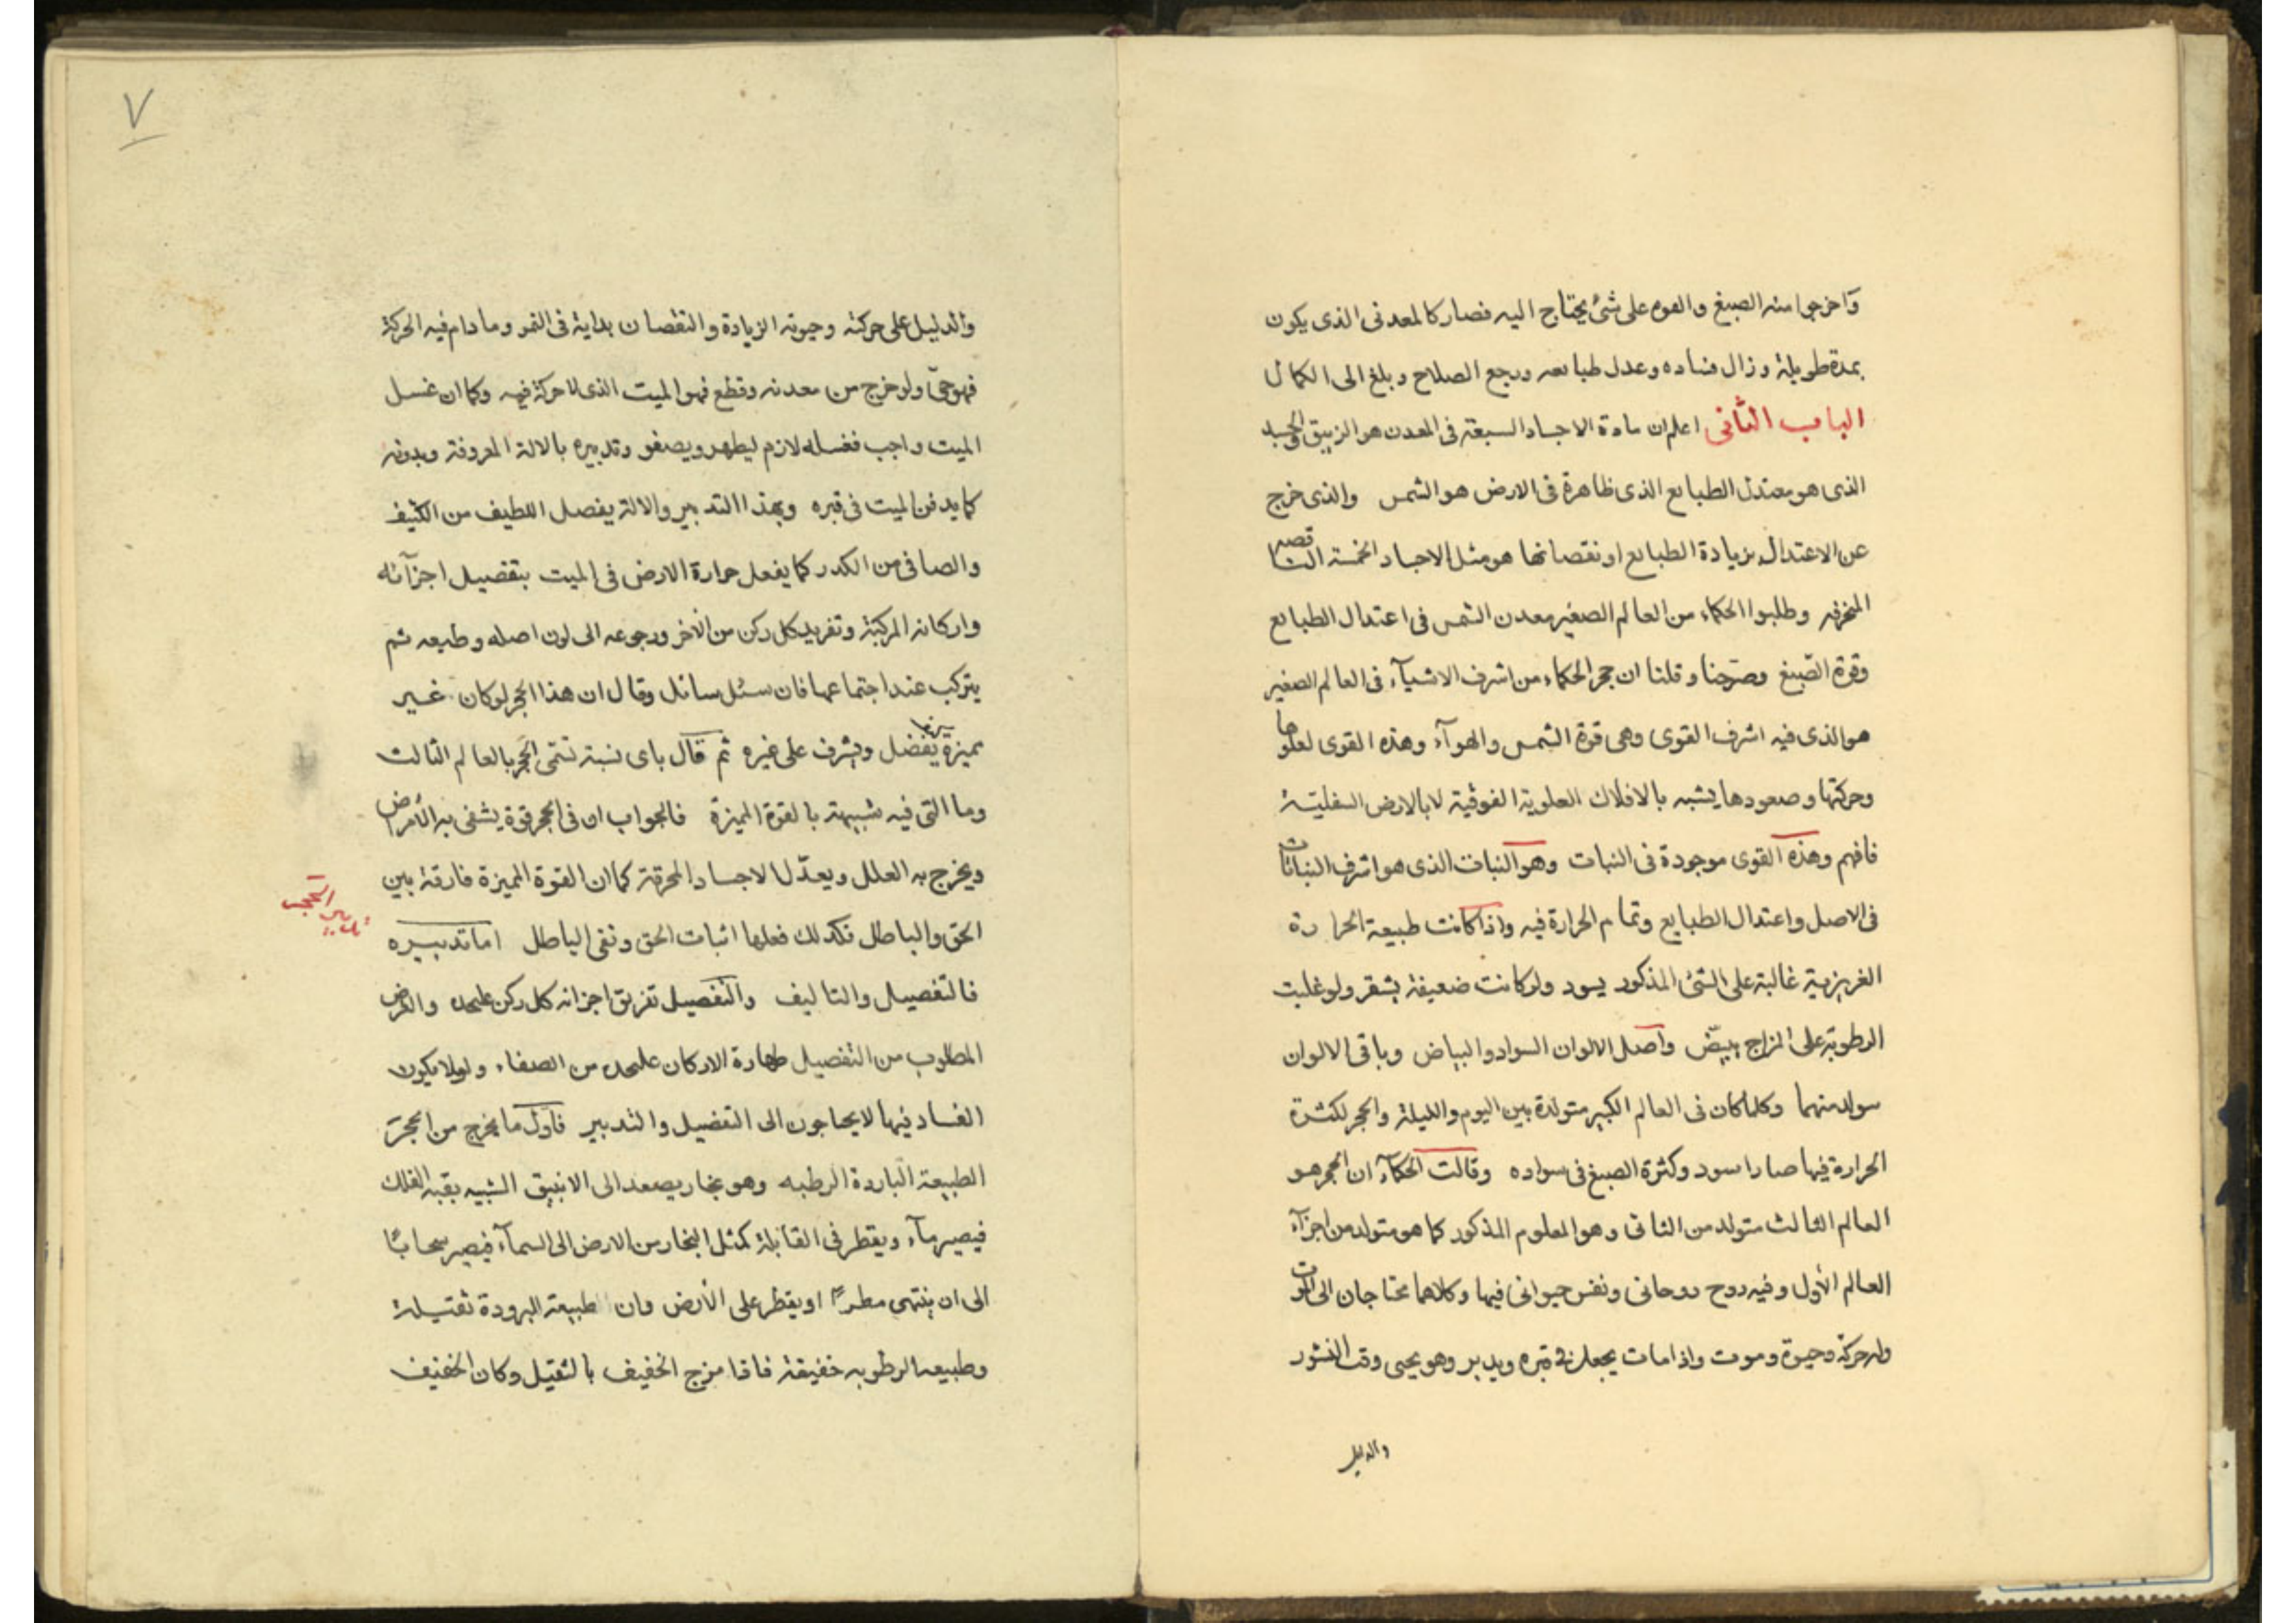 وآخرجوا منه الصبغ والقوه على شئ يحتاج اليه فصار كالمعدنى الذى يكون
بمدة طويلة وزال فساده وعدل طبايعه ورجع الصلاح وبلغ الى الكمال
الباب الثانى اعلم ان مادة الاجساد السبعة فى المعدن هو الزيبق والجسد
الذى هو معتدل الطبايع الذى ظاهرة فى الارض هو الشمس والذى خرج
عن الاعتدال بزيادة الطبايع او نقصانها هو مثل الاجساد الخمسة الناقصه
وطلبوا الحكماء من العالم الصغير معدن الشمس فى اعتدال الطبايع
وقوة الصّبغ وصرّحنا وقلنا ان حجر الحكماء من اشرف الاشيآء فى العالم الصغير
هو الذى فيه اشرف القوى وهى قوة الشمس والهوآء وهذه القوى لعلوها
وحركتها وصعودها يشبه بالافلاك العلوية الفوقية لا بالارض السفليّة
فافهم وهذه القوى موجودة فى النبات وهو النبات الذى هو اشرف النباتات
فى الاصل واعتدال الطبايع وتمام الحرارة فيه واذا كانت طبيعة الحرارة
الغريزية غالبة على الشئ المذكور يسود ولو كانت ضعيفة يشقر ولو غلبت
الرطوبة على المزاج يبيّض واصل الالوان السواد والبياض وباقى الالوان
سولد منهما وكلما كان فى العالم الكبير متولدة بين اليوم والليلة والحجر لكثرة
الحرارة فيها صار اسود وكثرة الصبغ فى سواده وقالت الحكمآء ان الحجر هو
العالم الثالث متولد من الثانى وهو المعلوم المذكور كما هو متولد من اجزآء
العالم الأول وفيه روح روحانى ونفس حيوانى فيها وكلاهما محتاجان الى الموت
وله حركة وحيوة وموت واذا مات يجعل فى قبره ويدبر وهو يحيى وقت النشور
والدليل
٧
والدليل على حركته وحيوته الزيادة والنقصان بداية فى القمر وما دام فيه الحركة
فهو حىّ ولو خرج من معدنه وقطع فهو الميت الذى لا حركة فيه وكما ان غسل
الميت واجب فغسله لازم ليطهر ويصفو وتدبيره بالالة المعروفة وبدونه
كما يدفن الميت فى قبره وبهذا التدبير والالة يفصل اللطيف من الكثيف
والصافى من الكدر كما يفعل حرارة الارض فى الميت بتفصيل اجزآئه
واركانه المركبة وتفريد كل ركن من الاخر ورجوعه الى لون اصله وطبعه ثم
يتركب عند اجتماعها فان سئل سائل وقال ان هذا الحجر لو كان غير
مميزة يفضل ويشرف على غيره ثم قال باى نسبة تسمّى الحجر بالعالم الثالث
وما التى فيه شبيهة بالقوة المميزة فالجواب ان فى الحجر قوة يشفى به الأمراض
ويخرج به العلل ويعدّل الاجساد المحرقة كما ان القوة المميزة فارقة بين
الحق والباطل فكذلك فعلها اثبات الحق ونفى الباطل اما تدبيره
تدبير الحجر
فالتفصيل والتاليف والتفصيل تفريق اجزائه كل ركن عليحده والغرض
المطلوب من التفصيل طهارة الاركان عليحده من الصفاء ولولا يكون
الفساد فيها لا يحتاجون الى التفصيل والتدبير فاول ما يخرج من الحجر
الطبيعة الباردة الرطبه وهو بخار يصعد الى الانبيق الشبيه بقبة الفلك
فيصير مآء ويقطر فى القابلة كمثل البخار من الارض الى السمآء فيصير سحاباً
الى ان ينتهى مطراً او يقطر على الأرض وان الطبيعة البرودة ثقيلة
وطبيعه الرطوبه خفيفة فاذا مزج الخفيف بالثقيل وكان الخفيف